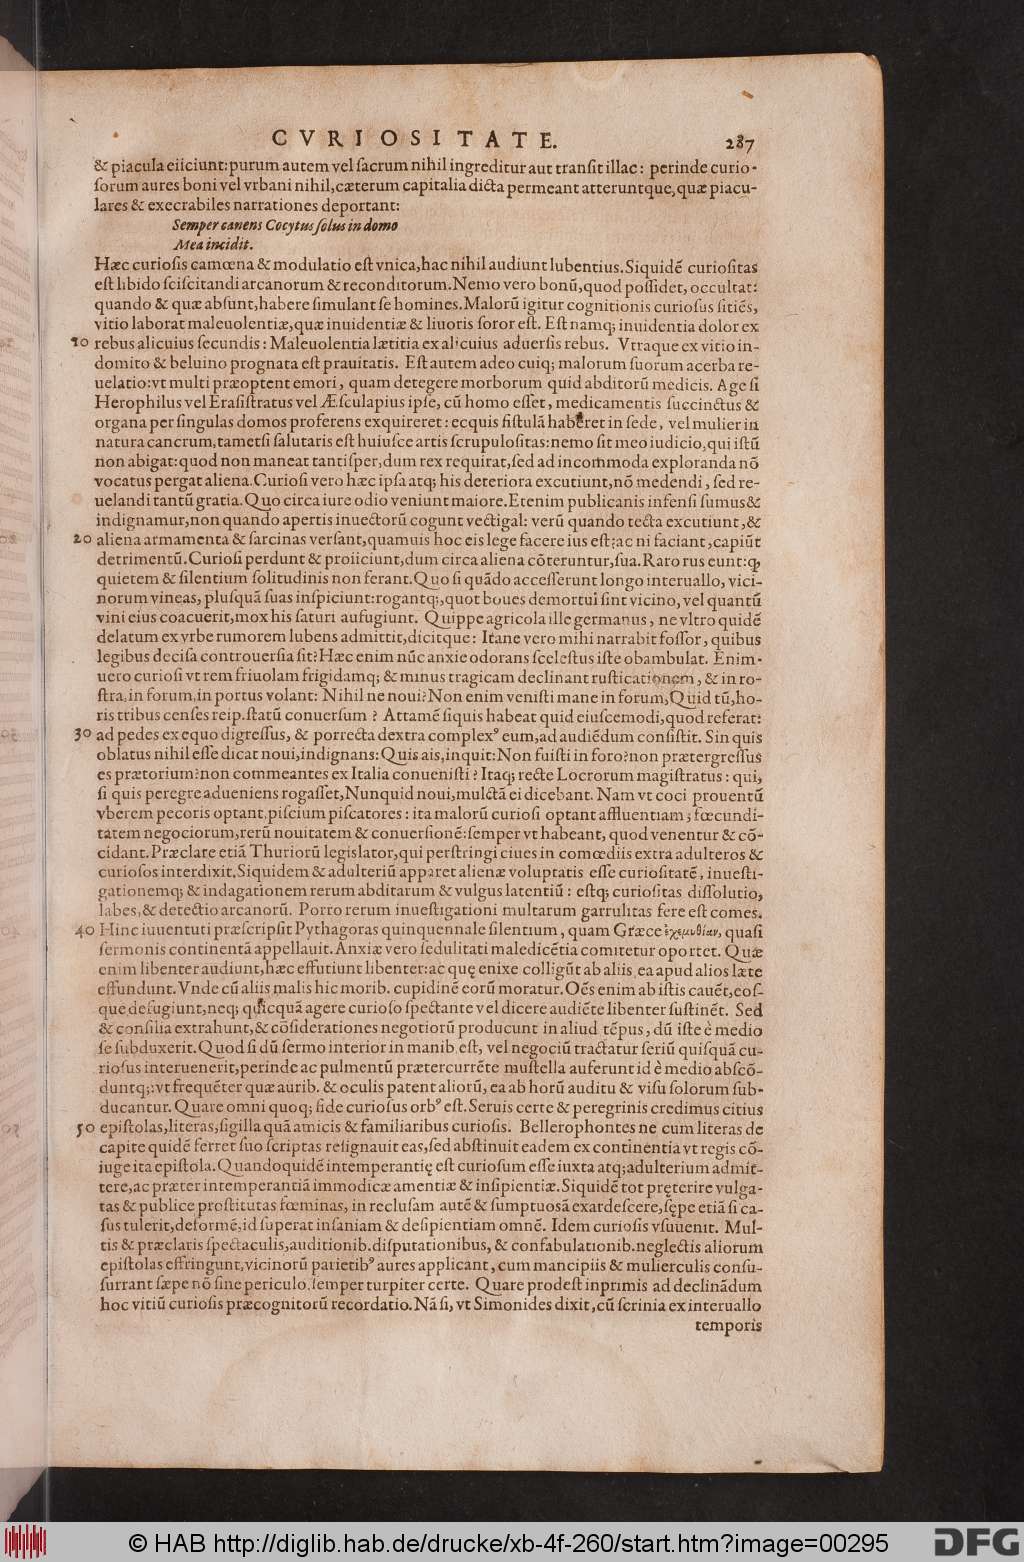 CVRIOSITATE. 287
& piacula eiiciunt: purum autem vel ſacrum nihil ingreditur aut tranſit illac: perinde curio-
ſorum aures boni vel vrbani nihil, cæterum capitalia dicta permeant atteruntque, quæ piacu-
lares & execrabiles narrationes deportant:
Semper canens Cocytus ſolus in domo
Mea incidit.
Hæc curioſis camœna & modulatio eſt vnica, hac nihil audiunt lubentius. Siquidē curioſitas
eſt libido ſciſcitandi arcanorum & reconditorum. Nemo vero bonū, quod poſſidet, occultat:
quando & quæ abſunt, habere ſimulant ſe homines. Malorū igitur cognitionis curioſus ſitiēs,
vitio laborat maleuolentiæ, quæ inuidentiæ & liuoris ſoror eſt. Eſt namq; inuidentia dolor ex
10 rebus alicuius ſecundis: Maleuolentia lætitia ex alicuius aduerſis rebus. Vtraque ex vitio in-
domito & beluino prognata eſt prauitatis. Eſt autem adeo cuiq; malorum ſuorum acerba re-
uelatio: vt multi præoptent emori, quam detegere morborum quid abditorū medicis. Age ſi
Herophilus vel Eraſiſtratus vel Æſculapius ipſe, cū homo eſſet, medicamentis ſuccinctus &
organa per ſingulas domos proferens exquireret: ecquis fiſtulā haberet in ſede, vel mulier in
natura cancrum, tametſi ſalutaris eſt huiuſce artis ſcrupuloſitas: nemo ſit meo iudicio, qui iſtū
non abigat: quod non maneat tantiſper, dum rex requirat, ſed ad incommoda exploranda nō
vocatus pergat aliena. Curioſi vero hæc ipſa atq; his deteriora excutiunt, nō medendi, ſed re-
uelandi tantū gratia. Quo circa iure odio veniunt maiore. Etenim publicanis infenſi ſumus &
indignamur, non quando apertis inuectorū cogunt vectigal: verū quando tecta excutiunt, &
20 aliena armamenta & ſarcinas verſant, quamuis hoc eis lege facere ius eſt: ac ni faciant, capiūt
detrimentū. Curioſi perdunt & proiiciunt, dum circa aliena cōteruntur, ſua. Raro rus eunt: ꝙ
quietem & ſilentium ſolitudinis non ferant. Quo ſi quādo acceſſerunt longo interuallo, vici-
norum vineas, pluſquā ſuas inſpiciunt: rogantq;, quot boues demortui ſint vicino, vel quantū
vini eius coacuerit, mox his ſaturi aufugiunt. Quippe agricola ille germanus, ne vltro quidē
delatum ex vrbe rumorem lubens admittit, dicitque: Itane vero mihi narrabit foſſor, quibus
legibus deciſa controuerſia ſit? Hæc enim nūc anxie odorans ſceleſtus iſte obambulat. Enim-
uero curioſi vt rem friuolam frigidamq; & minus tragicam declinant ruſticationem, & in ro-
ſtra, in forum, in portus volant: Nihil ne noui? Non enim veniſti mane in forum, Quid tū, ho-
ris tribus cenſes reip. ſtatū conuerſum? Attamē ſiquis habeat quid eiuſcemodi, quod referat:
30 ad pedes ex equo digreſſus, & porrecta dextra complexꝰ eum, ad audiēdum conſiſtit. Sin quis
oblatus nihil eſſe dicat noui, indignans: Quis ais, inquit: Non fuiſti in foro? non prætergreſſus
es prætorium? non commeantes ex Italia conueniſti? Itaq; recte Locrorum magiſtratus: qui,
ſi quis peregre adueniens rogaſſet, Nunquid noui, mulctā ei dicebant. Nam vt coci prouentū
vberem pecoris optant, piſcium piſcatores: ita malorū curioſi optant affluentiam, fœcundi-
tatem negociorum, rerū nouitatem & conuerſionē: ſemper vt habeant, quod venentur & cō-
cidant. Præclare etiā Thuriorū legislator, qui perſtringi ciues in comœdiis extra adulteros &
curioſos interdixit. Siquidem & adulteriū apparet alienæ voluptatis eſſe curioſitatē, inueſti-
gationemq; & indagationem rerum abditarum & vulgus latentiū: eſtq; curioſitas diſſolutio,
labes, & detectio arcanorū. Porro rerum inueſtigationi multarum garrulitas fere eſt comes.
40 Hinc iuuentuti præſcripſit Pythagoras quinquennale ſilentium, quam Græce ἐχεμυθίαν, quaſi
ſermonis continentā appellauit. Anxiæ vero ſedulitati maledicētia comitetur oportet. Quæ
enim libenter audiunt, hæc effutiunt libenter: ac quę enixe colligūt ab aliis, ea apud alios læte
effundunt. Vnde cū aliis malis hic morib. cupidinē eorū moratur. Oēs enim ab iſtis cauēt, eoſ-
que defugiunt, neq; quicquā agere curioſo ſpectante vel dicere audiēte libenter ſuſtinēt. Sed
& conſilia extrahunt, & cōſiderationes negotiorū producunt in aliud tēpus, dū iſte è medio
ſe ſubduxerit. Quod ſi dū ſermo interior in manib. eſt, vel negociū tractatur ſeriū quiſquā cu-
rioſus interuenerit, perinde ac pulmentū prætercurrēte muſtella auferunt id è medio abſcō-
duntq;: vt frequēter quæ aurib. & oculis patent aliorū, ea ab horū auditu & viſu ſolorum ſub-
ducantur. Quare omni quoq; fide curioſus orbꝰ eſt. Seruis certe & peregrinis credimus citius
50 epiſtolas, literas, ſigilla quā amicis & familiaribus curioſis. Bellerophontes ne cum literas de
capite quidē ferret ſuo ſcriptas reſignauit eas, ſed abſtinuit eadem ex continentia vt regis cō-
iuge ita epiſtola. Quandoquidē intemperantię eſt curioſum eſſe iuxta atq; adulterium admit-
tere, ac præter intemperantiā immodicæ amentiæ & inſipientiæ. Siquidē tot pręterire vulga-
tas & publice proſtitutas fœminas, in recluſam autē & ſumptuosā exardeſcere, ſępe etiā ſi ca-
ſus tulerit, deformē, id ſuperat inſaniam & deſipientiam omnē. Idem curioſis vſuuenit. Mul-
tis & præclaris ſpectaculis, auditionib. diſputationibus, & confabulationib. neglectis aliorum
epiſtolas effringunt, vicinorū parietibꝰ aures applicant, cum mancipiis & mulierculis conſu-
ſurrant ſæpe nō ſine periculo, ſemper turpiter certe. Quare prodeſt inprimis ad declinādum
hoc vitiū curioſis præcognitorū recordatio. Nā ſi, vt Simonides dixit, cū ſcrinia ex interuallo
temporis
© HAB http://diglib.hab.de/drucke/xb-4f-260/start.htm?image=00295
DFG